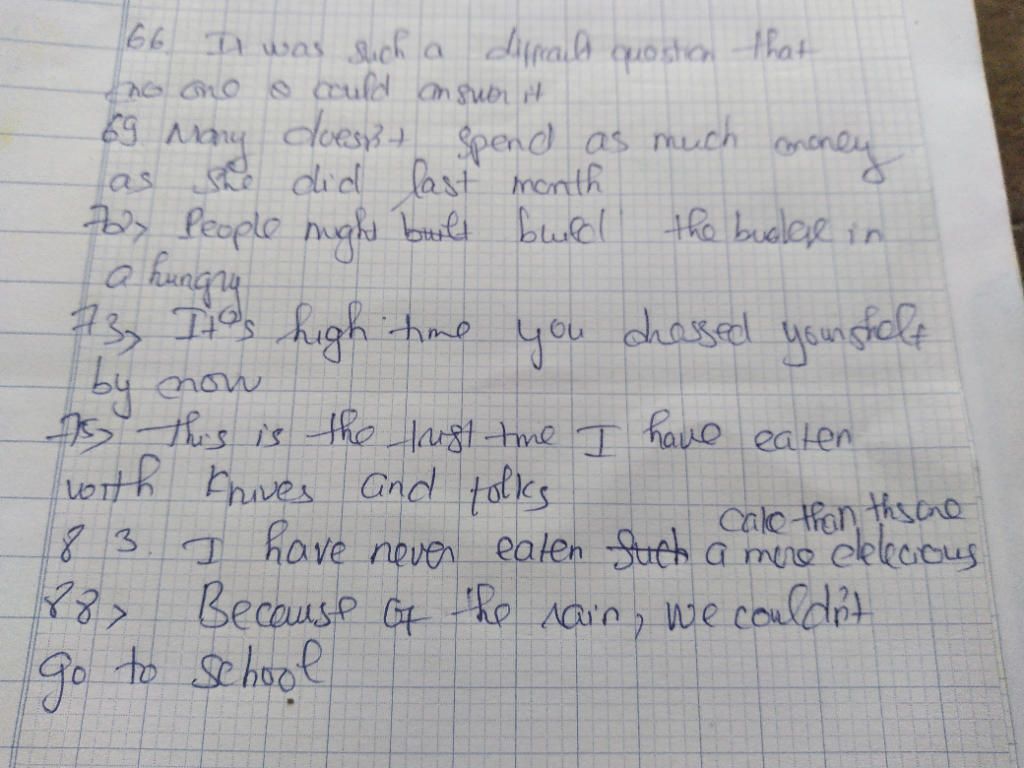 66 It was such a difficult question that
no one could answer it
69 Mary doesn't spend as much money
as she did last month
70> People might built build the in
a hungry
73> It's high time you dressed yourshelf
by now
75> this is the first time I have eaten
with Knives and folks
cake than this one
83. I have never eaten such a more delecious
88> Because of the rain, we couldn't
go to school